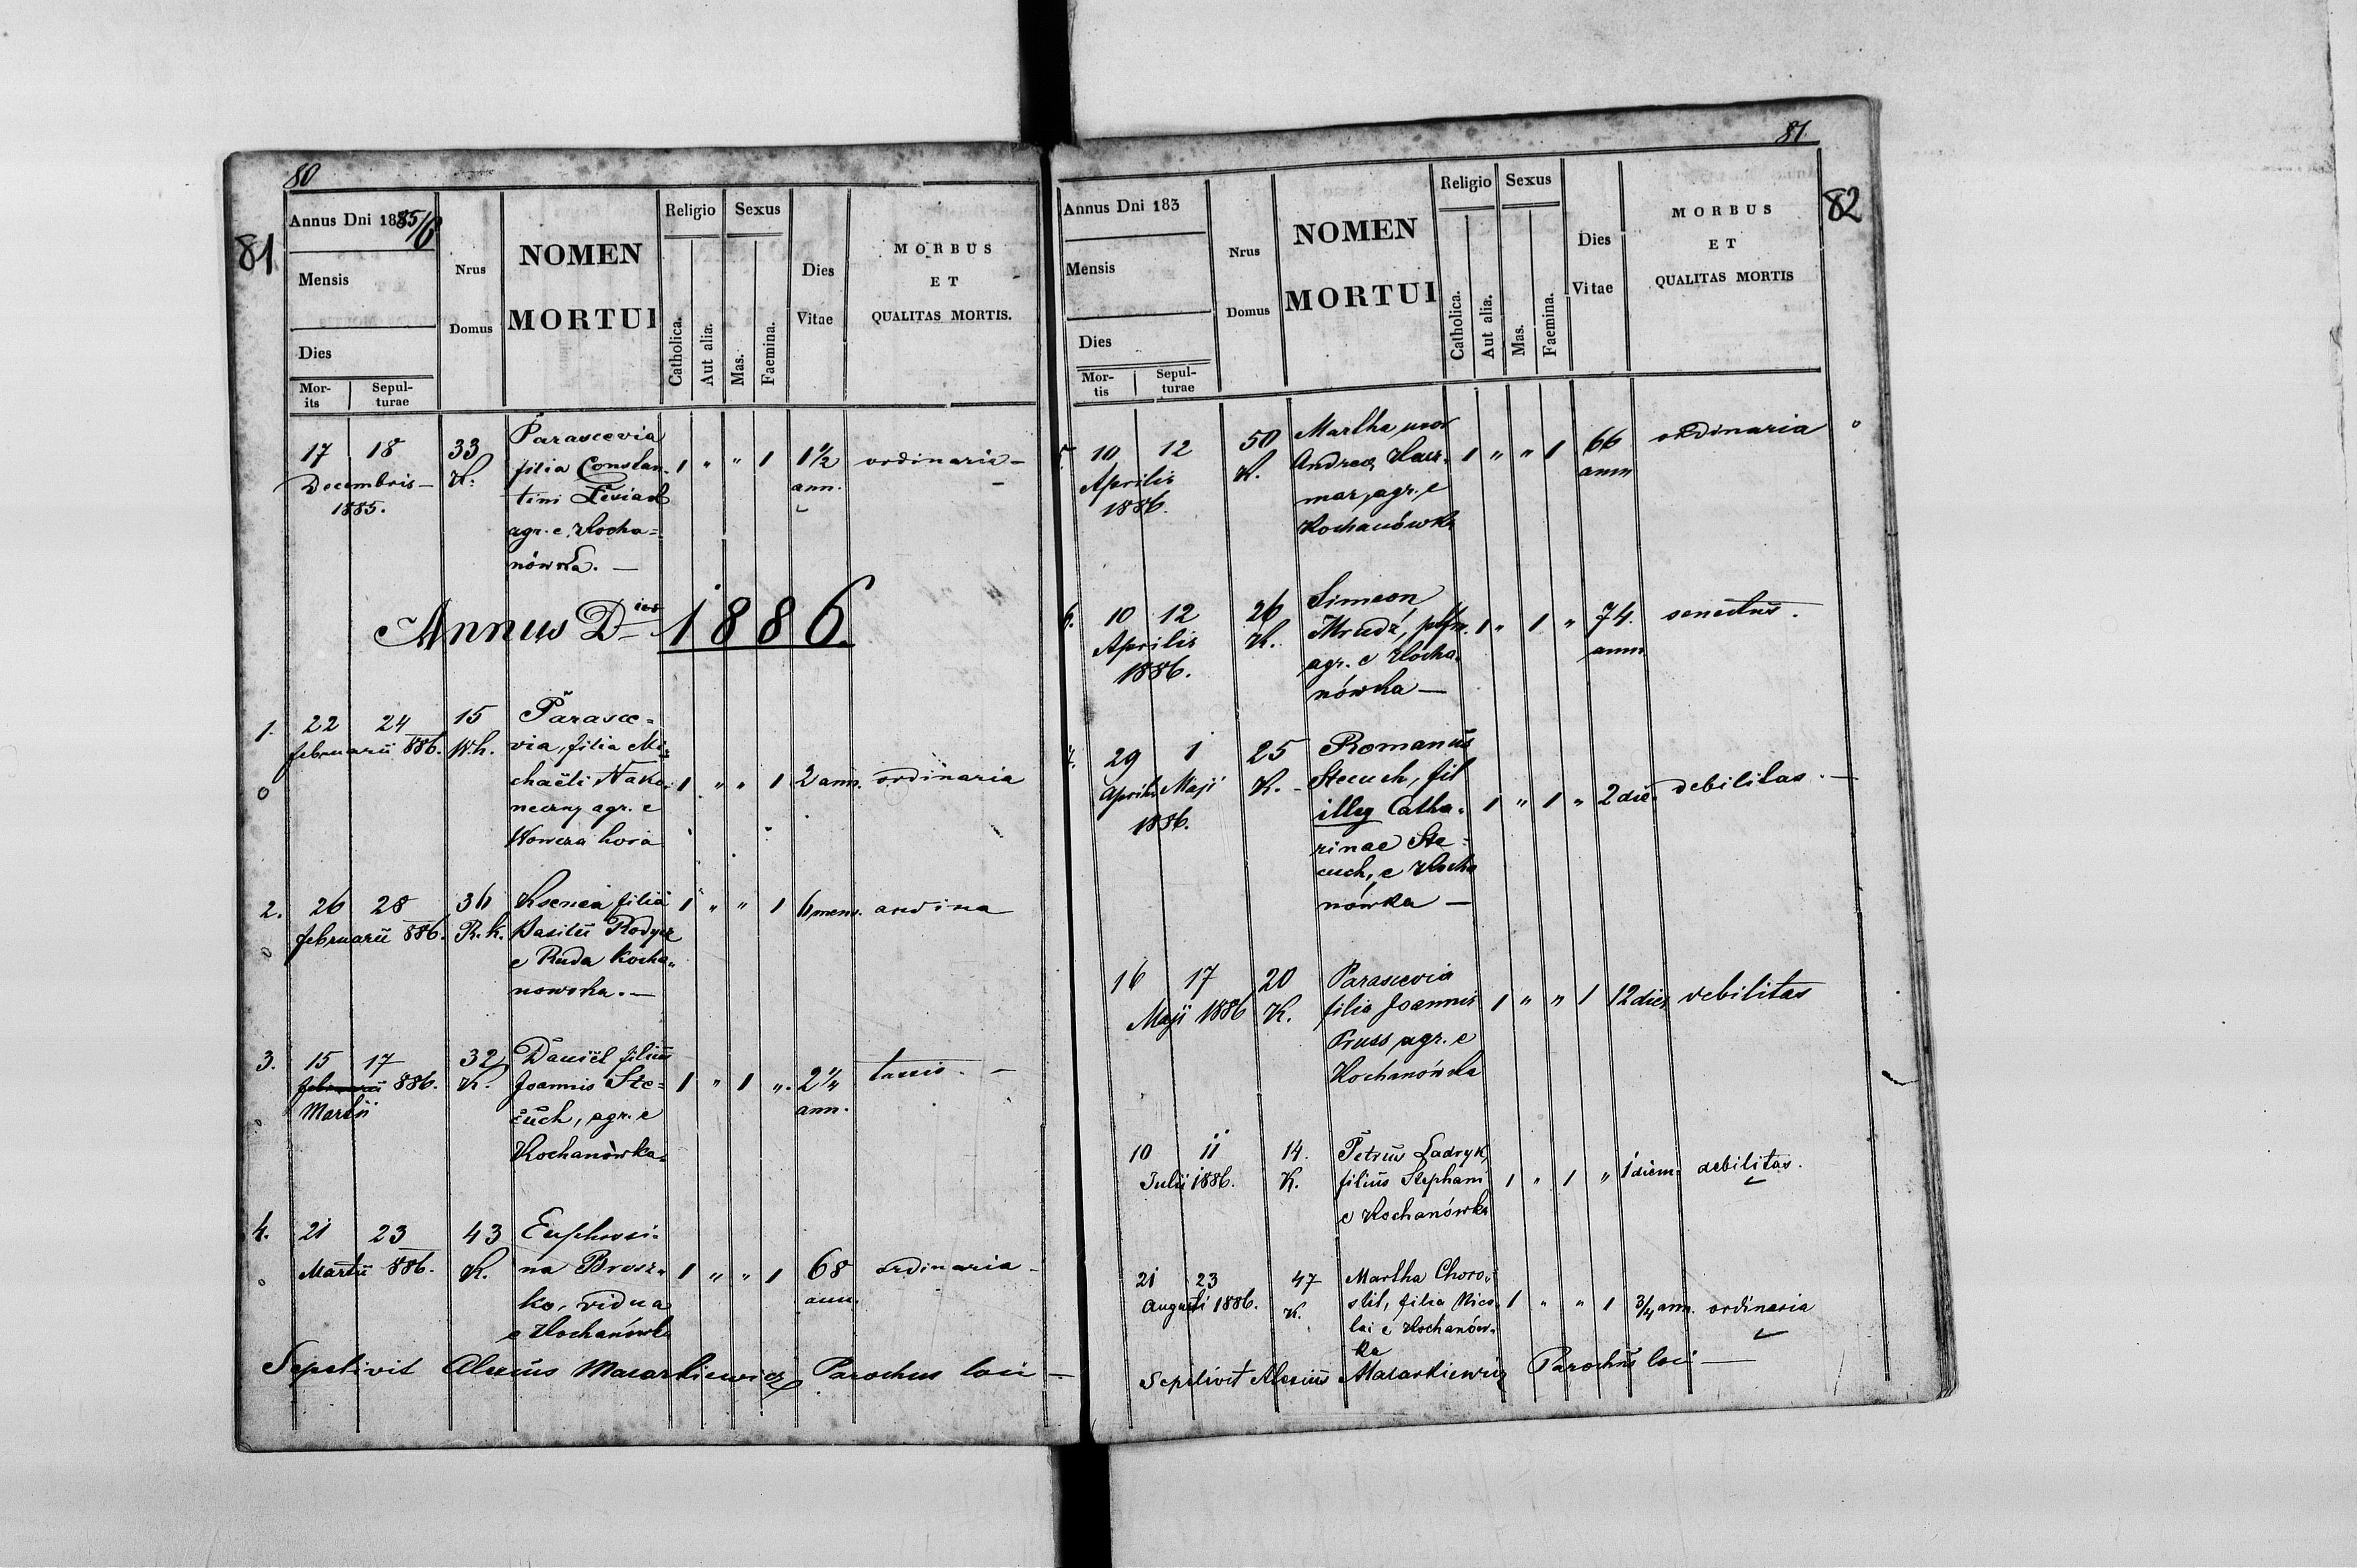 80
81
Annus Dni 1885/6
Mensis
Dies
Mor-
its
Sepul-
turae
Nrus
Domus
NOMEN
MORTUI
Religio
Catholica.
Aut alia.
Sexus
Mas.
Faemina.
Dies
Vitae
MORBUS
ET
QUALITAS MORTIS.
17 18 33 Parascevia
filia Constan- 1 " " 1 1½ ordinaria —
Decembris — K. ann.
1885. tini
agr. e Kocha=
nówka. —
Annus Dni 1886.
1. 22 24 15 Parasce=
februarii 886. W.h. via, filia Mi=
chaëli Nako- 1 " " 1 2 ann. ordinaria
neczny agr. e
Wowcza hora
2. 26 28 36 Ksenia filia 1 " " 1 6 mens. ordina
februarii 886. R.K. Basilii
e Ruda Kocha=
nowska. —
3. 15 17 32 Daniël filius
februarii 886. K. Joannis Ste= 1 " 1 " 2½ tussis. —
Martii ann.
cuch, agr. e
Kochanówka
4. 21 23 43 Euphrosi=
Martii 886. K. na Brosz= 1 " " 1 68 ordinaria —
ann.
ko, vidua
e Kochanówka
Sepelivit Alexius Macarkiewicz Parochus loci —
81.
82
Annus Dni 183
Mensis
Dies
Mor-
tis
Sepul-
turae
Nrus
Domus
NOMEN
MORTUI
Religio
Catholica.
Aut alia.
Sexus
Mas.
Faemina.
Dies
Vitae
MORBUS
ET
QUALITAS MORTIS
5. 10 12 50 Martha uxor
Aprilis K. Andreae 1 " " 1 66 ordinaria
1886. ann
mar, agr. e
Kochanówka
6. 10 12 26 Simeon
Aprilis K. Mrudź, 1 " 1 " 74. senectus.
1886. agr. e Kocha= ann
nówka —
7. 29 1 25 Romanus
Aprilis Maji K. Stecuch, fil
1886. illeg Catha= 1 " 1 " 2 die debilitas. —
rinae Ste=
cuch, e Kocha
nówka —
16 17 20 Parascevia
Maji 1886 K. filia Joannis 1 " " 1 12 dies debilitas
Pruss agr. e
Kochanówka
10 11 14. Petrus Ladryk,
Julii 1886. K. filius Stephani 1 " 1 " 1 diem debilitas.
e Kochanówka
21 23 47 Martha Choro=
Augusti 1886. K. stil, filia Nico= 1 " " 1 3/4 ann. ordinaria
lai e Kochanów=
ka
Sepelivit Alexius Macarkiewicz Parochus loci —